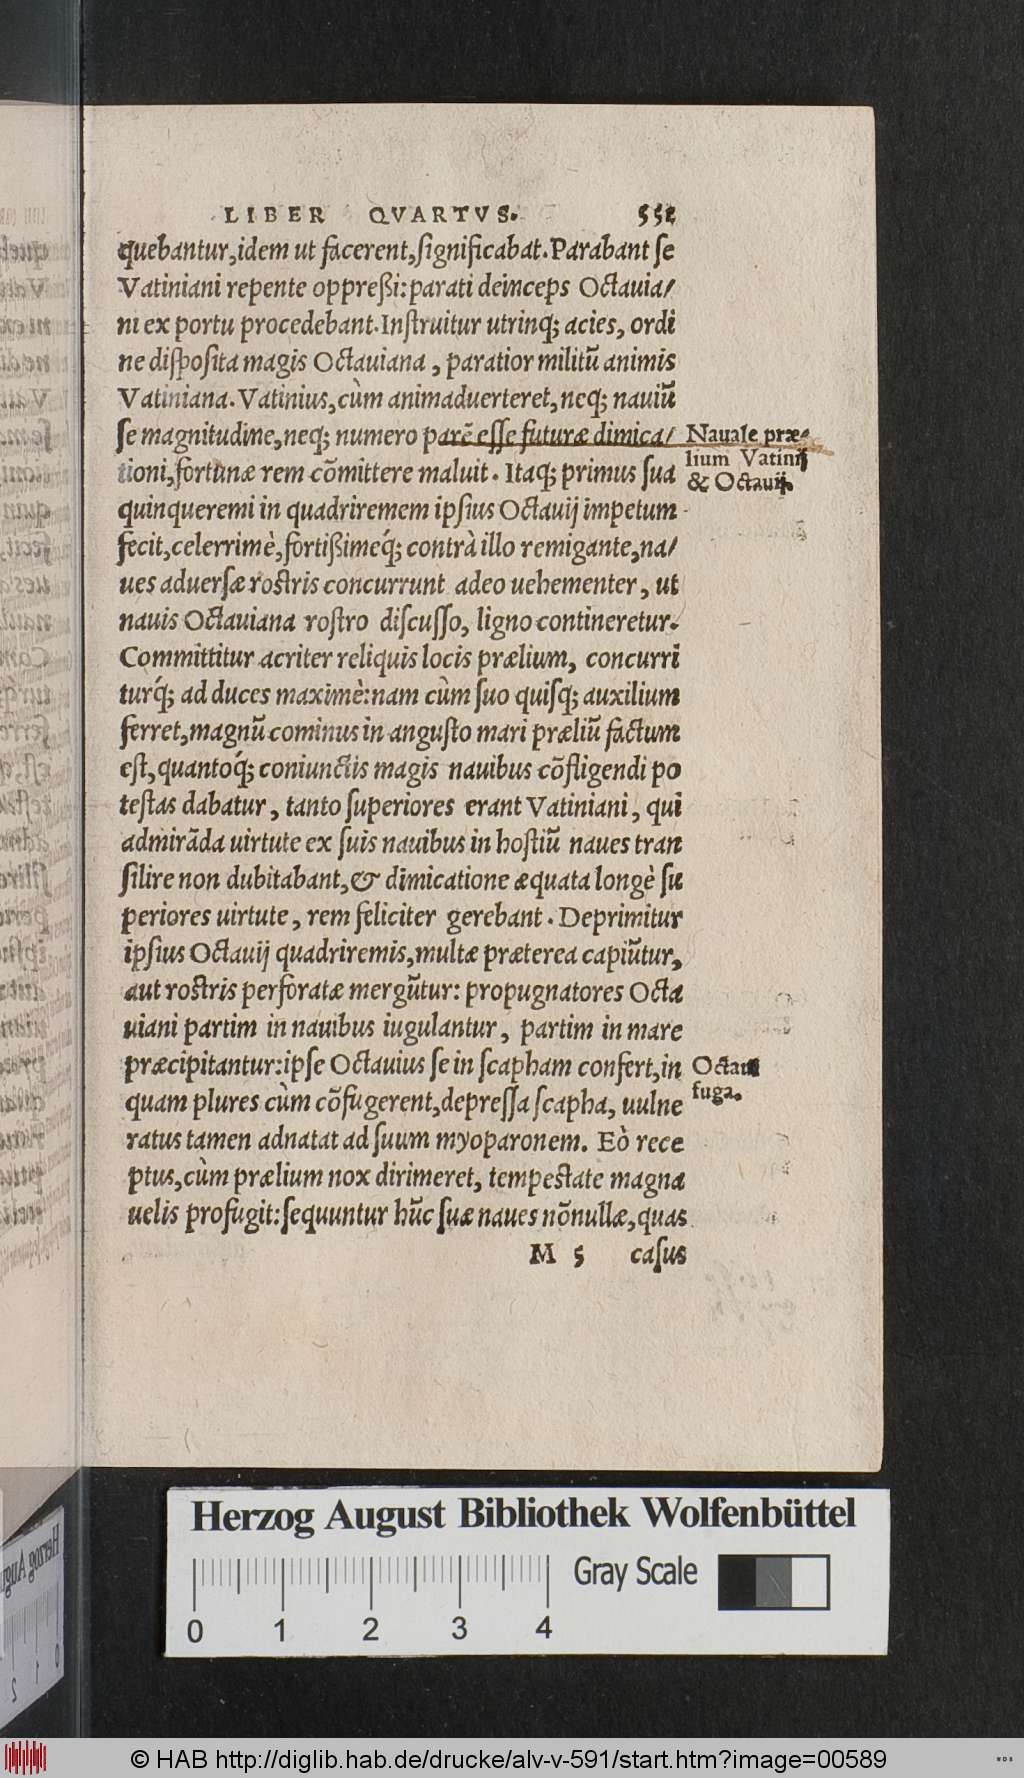 LIBER QVARTVS. 552
quebantur, idem ut facerent, significabat. Parabant se
Vatiniani repente oppreßi: parati deinceps Octauia/
ni ex portu procedebant. Instruitur utrinq; acies, ordi
ne disposita magis Octauiana, paratior militũ animis
Vatiniana. Vatinius, cùm animaduerteret, neq; nauiũ
se magnitudine, neq; numero parẽ esse futuræ dimica/
tioni, fortunæ rem cõmittere maluit. Itaq; primus sua
quinqueremi in quadriremem ipsius Octauij impetum
fecit, celerrimè, fortißimeq́; contrà illo remigante, na/
ues aduersæ rostris concurrunt adeo uehementer, ut
nauis Octauiana rostro discusso, ligno contineretur.
Committitur acriter reliquis locis prælium, concurri
turq́; ad duces maximè: nam cùm suo quisq; auxilium
ferret, magnũ cominus in angusto mari præliũ factum
est, quantoq́; coniunctis magis nauibus cõfligendi po
testas dabatur, tanto superiores erant Vatiniani, qui
admirãda uirtute ex suis nauibus in hostiũ naues tran
silire non dubitabant, & dimicatione æquata longè su
periores uirtute, rem feliciter gerebant. Deprimitur
ipsius Octauij quadriremis, multæ præterea capiũtur,
aut rostris perforatæ mergũtur: propugnatores Octa
uiani partim in nauibus iugulantur, partim in mare
præcipitantur: ipse Octauius se in scapham confert, in
quam plures cùm cõfugerent, depressa scapha, uulne
ratus tamen adnatat ad suum myoparonem. Eò rece
ptus, cùm prælium nox dirimeret, tempestate magna
uelis profugit: sequuntur hũc suæ naues nõnullæ, quas
M 5 casus
Nauale præ-
lium Vatinij
& Octauij.
Octauij
fuga.
Herzog August Bibliothek Wolfenbüttel
Gray Scale
0 1 2 3 4
© HAB http://diglib.hab.de/drucke/alv-v-591/start.htm?image=00589